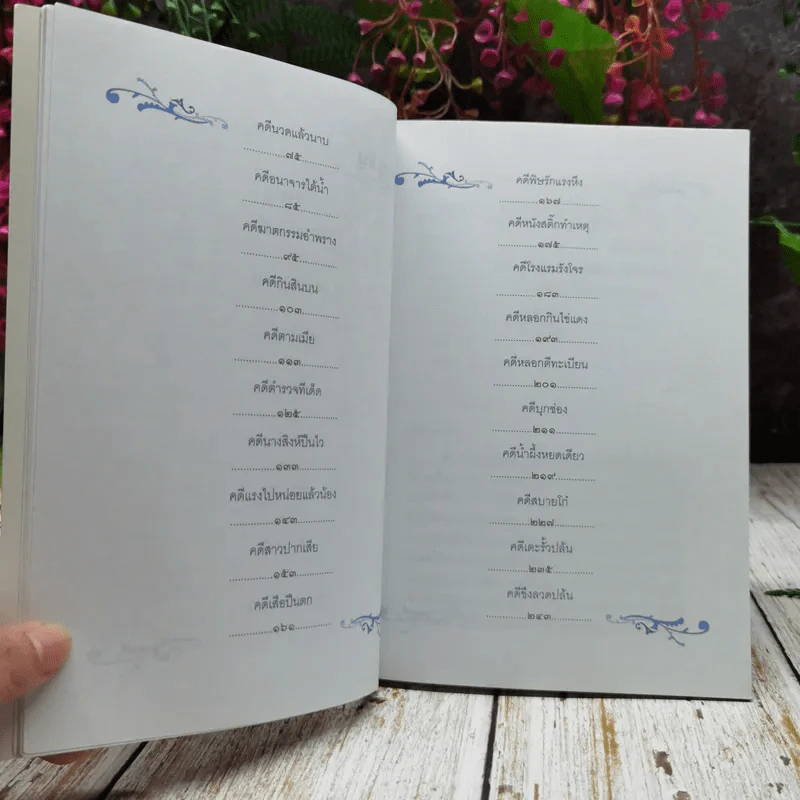 คดีนวดแล้วนาบ
..............๗๕..............
คดีอนาจารใต้น้ำ
..............๘๕..............
คดีฆาตกรรมอำพราง
..............๙๕..............
คดีกินสินบน
..............๑๐๓..............
คดีตามเมีย
..............๑๑๓..............
คดีตำรวจทีเด็ด
..............๑๒๕..............
คดีนางสิงห์ปืนไว
..............๑๓๓..............
คดีแรงไปหน่อยแล้วน้อง
..............๑๔๓..............
คดีสาวปากเสีย
..............๑๕๓..............
คดีเสือปืนตก
..............๑๖๑..............
คดีพิษรักแรงหึง
..............๑๖๗..............
คดีหนังสติ๊กทำเหตุ
..............๑๗๕..............
คดีโรงแรมรังโจร
..............๑๘๓..............
คดีหลอกกินไข่แดง
..............๑๙๓..............
คดีหลอกตีทะเบียน
..............๒๐๑..............
คดีบุกซ่อง
..............๒๑๑..............
คดีน้ำผึ้งหยดเดียว
..............๒๑๙..............
คดีสบายโก๋
..............๒๒๗..............
คดีเตะรั้วปล้น
..............๒๓๕..............
คดีขึงลวดปล้น
..............๒๔๓..............